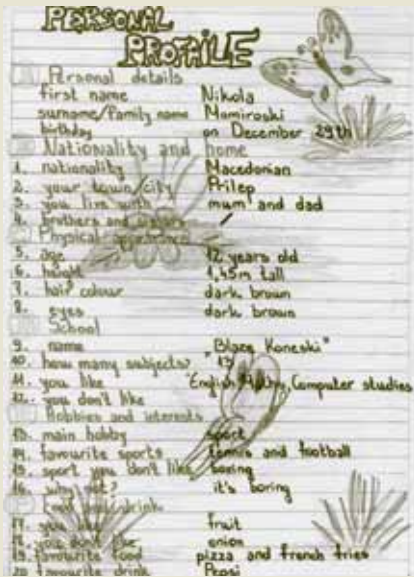 PERSONAL
PROFAILE
Personal details
first name Nikola
surname/Family name Mamiroski
birthday on December 29th
Nationality and home
1. nationality Macedonian
2. your town/city Prilep
3. you live with mum and dad
4. brothers and sisters /
Physical appearance
5. age 12 years old
6. height 1,45m tall
7. hair colour dark brown
8. eyes dark brown
School
9. name "Blaze Koneski"
10. how many subjects? 13
11. you like English, Maths, Computer studies
12. you don't like
Hobbies and interests
13. main hobby sport
14. favourite sports tennis and football
15. sport you don't like boxing
16. why not? it's boring
Food and drink
17. you like fruit
18. you don't like onion
19. favourite food pizza and french fries
20 favourite drink Pepsi